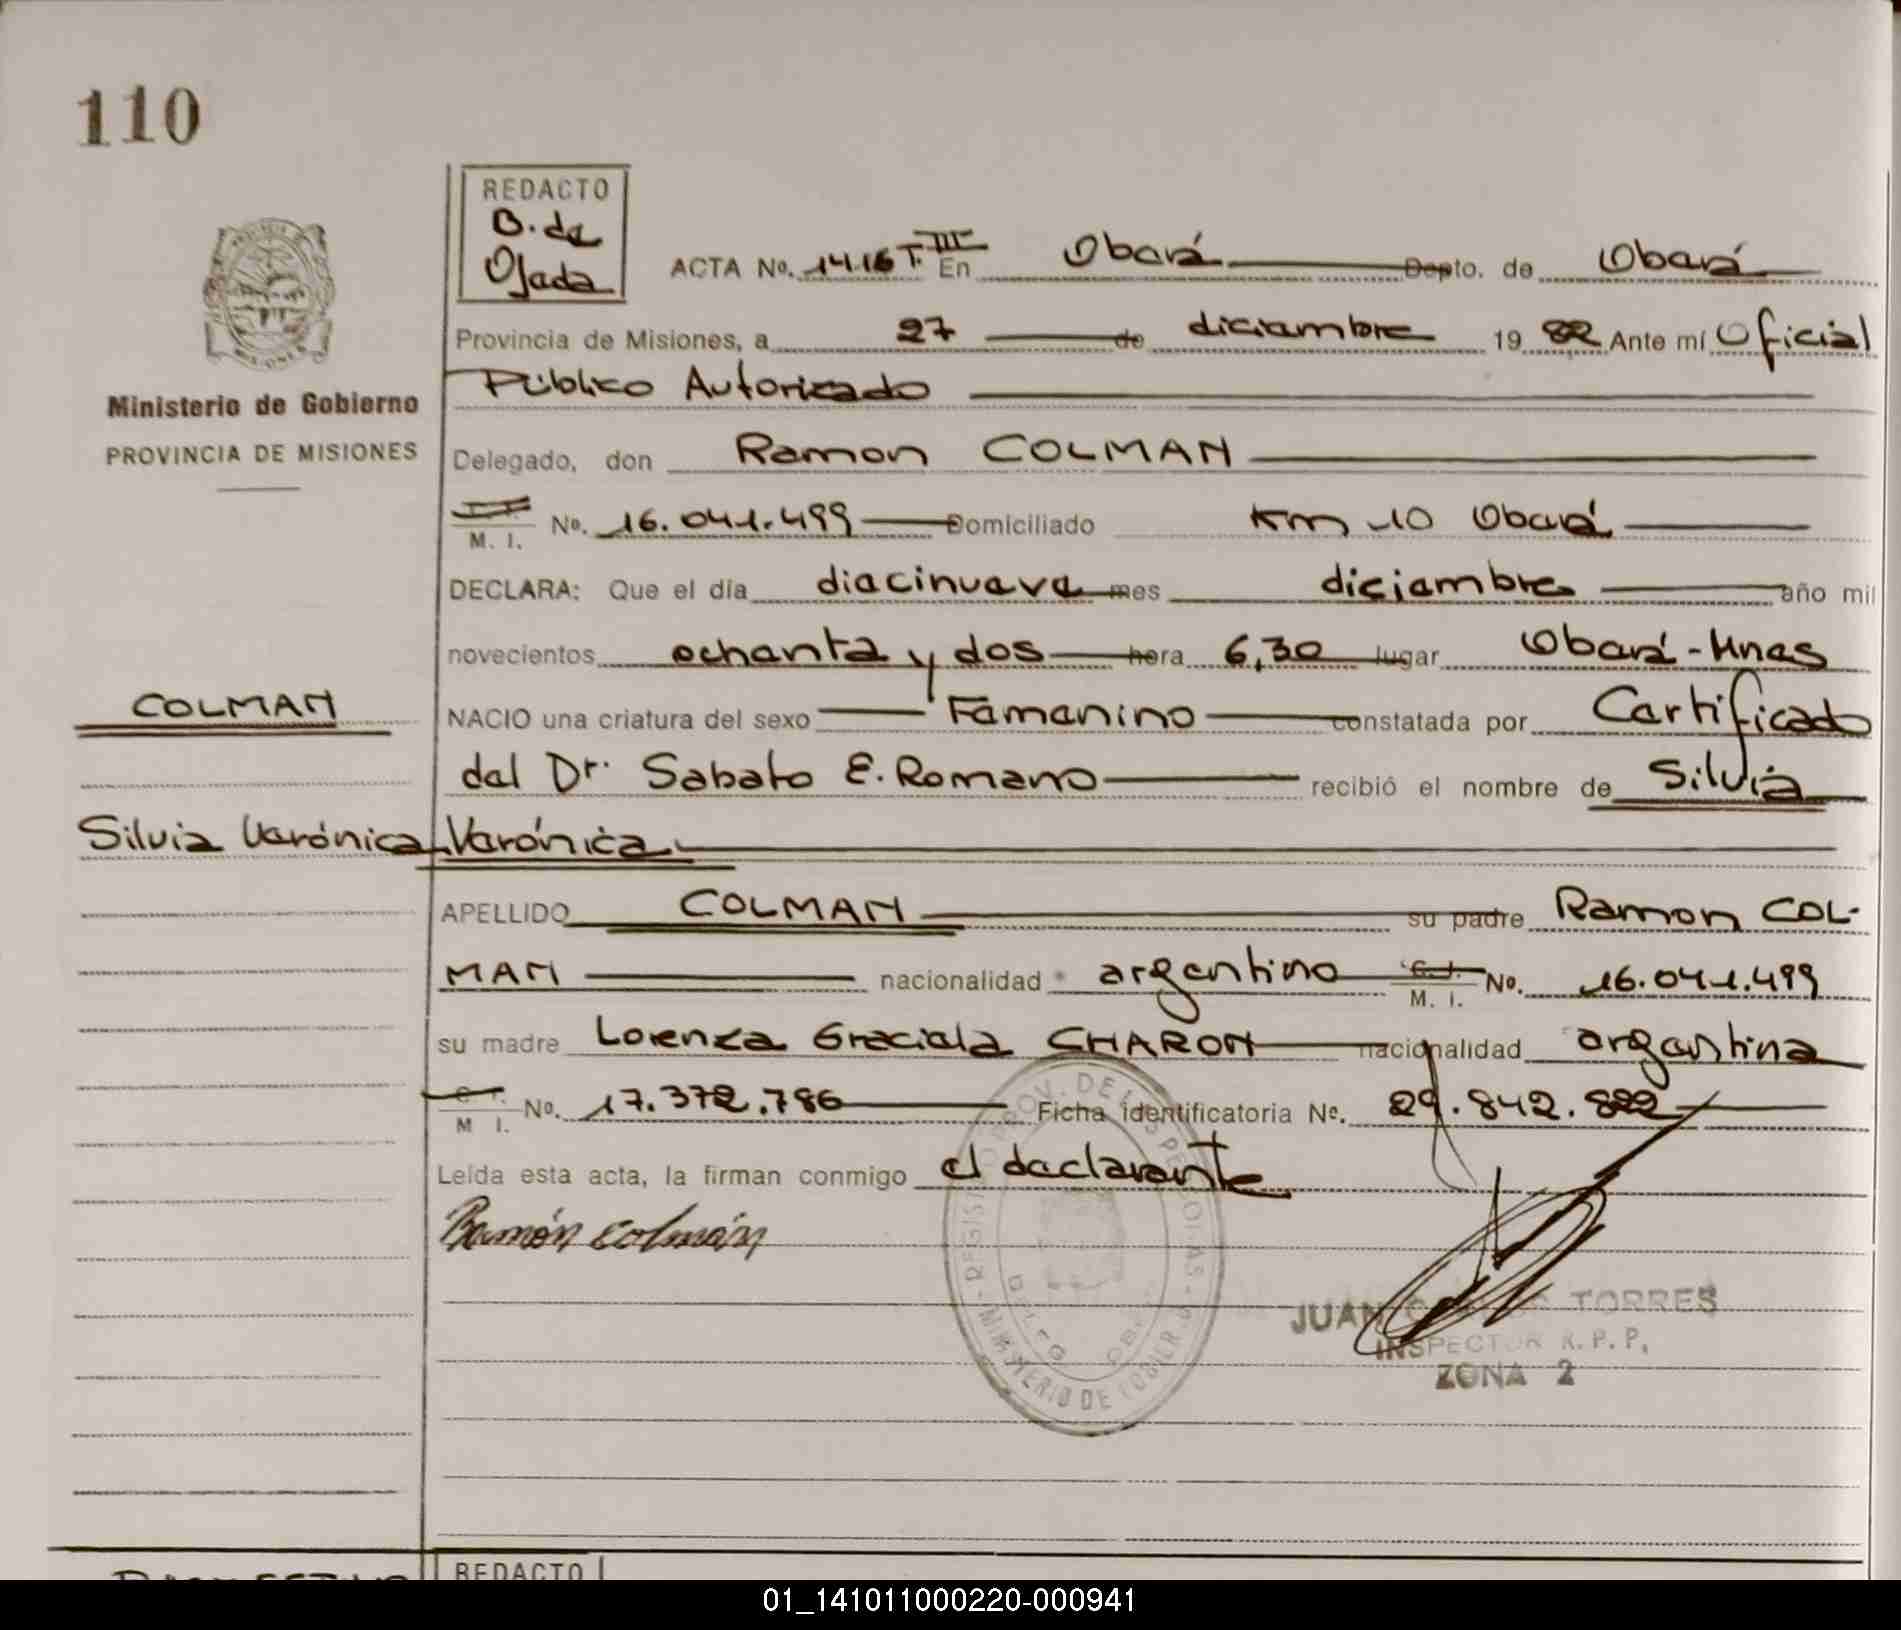 110
REDACTO
B. de
Ojeda
ACTA No. 1416 T. III En Oberá Depto. de Oberá
Provincia de Misiones, a 27 de diciembre 19 82 Ante mí Oficial
Ministerio de Gobierno
Público Autorizado
PROVINCIA DE MISIONES
Delegado, don Ramon COLMAN
M. I. No. 16.041.499 Domiciliado Km 10 Oberá
DECLARA: Que el día diecinueve mes diciembre año mil
novecientos ochenta y dos hora 6,30 lugar Oberá - Mnes
COLMAN
NACIO una criatura del sexo Femenino constatada por Certificado
del Dr. Sabato E. Romano recibió el nombre de Silvia
Silvia Verónica
Verónica
APELLIDO COLMAN su padre Ramon COL-
MAN nacionalidad argentino C. I. M. I. No. 16.041.499
su madre Lorenza Graciela CHARON nacionalidad argentina
M I. No. 17.372.786 Ficha identificatoria No. 29.842.822
Leida esta acta, la firman conmigo el declarante
Ramón Colmán
JUAN TORRES
INSPECTOR R.P.P.
ZONA 2
REDACTO
01_141011000220-000941